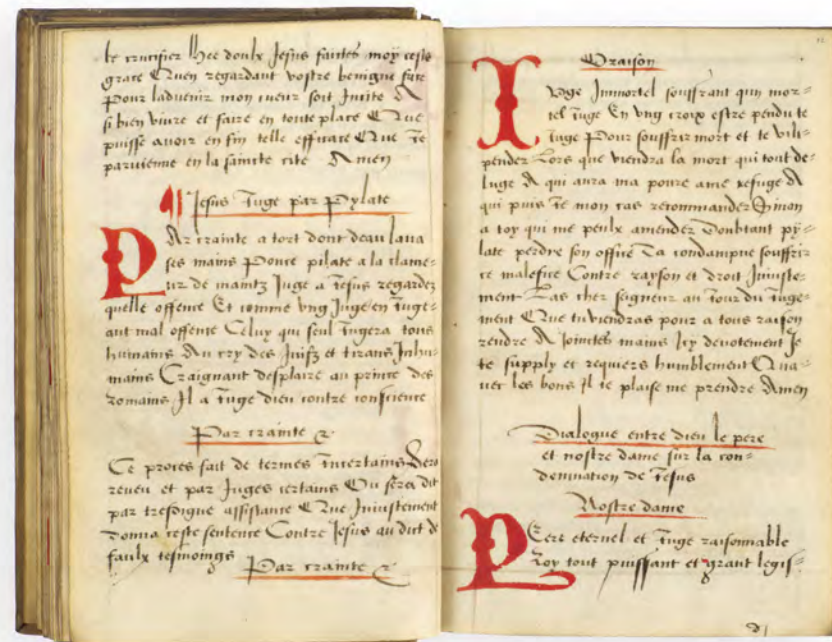 le crucifier Hee doulx Jesus faictes moy ceste
grace Quen regardant vostre benigne face
Pour ladvenir mon cueur soit Incite A
si bien vivre et faire en toute place Que
puisse avoir en fin telle efficace Que Je
parvienne en la saincte cite Amen
¶ Jesus Juge par Pylate
PAr crainte a tort dont deau lava
ses mains Ponce pilate a la clame-
ur de maintz Juge a Jesus regardez
quelle offence Et comme vng Juge en Juge-
ant mal offence Celuy qui seul Jugera tous
humains Au cry des Juifz et tirans Inhu
mains Craignant desplaire au prince des
Romains Il a Juge dieu contre conscience
Par crainte &
Ce proces fait de termes Incertains Sera
reveu et par Juges certains Ou sera dit
par tresdigne assistance Que Iniustement
donna ceste sentence Contre Jesus au dit de
faulx tesmoings
Par crainte &
Oraison
IVge Immortel souffrant qun mor=
tel Juge En vng croix estre pendu te
Juge Pour souffrir mort et te vili=
pender Lors que viendra la mort qui tout de=
luge A qui aura ma povre ame refuge A
qui puis Je mon cas recommander Sinon
a toy qui me peulx amender Doubtant py=
late perdre son office Ta condampne souffrir
ce malefice Contre rayson et droit Iniuste=
ment Las cher seigneur au Jour du Juge=
ment Que tu viendras pour a tous raison
rendre A Joinctes mains Icy devotement Je
te supply et requiers humblement Qua=
vec les bons Il te plaise me prendre Amen
Dialogue entre dieu le pere
et nostre dame sur la con=
demnation de Jesus
Nostre dame
PEre eternel et Juge raisonnable
Roy tout puissant et grant legis=